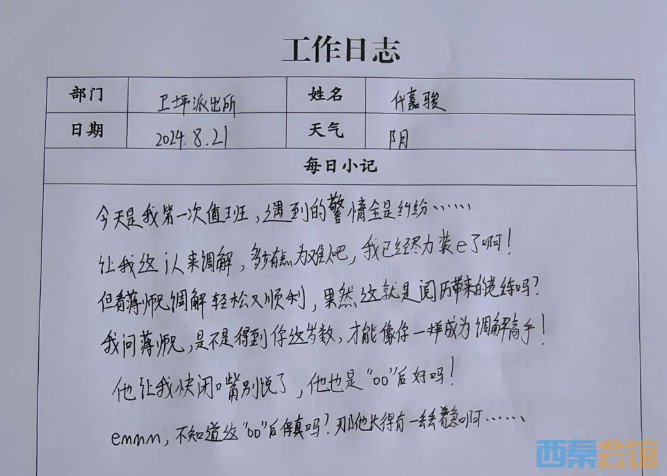 工作日志
部门 卫坪派出所 姓名 代嘉骏
日期 2024.8.21 天气 阴
每日小记
今天是我第一次值班，遇到的警情全是纠纷……
让我这i人来调解，多少有点为难吧，我已经尽力装e了啊！
但看薄师兄调解轻松又顺利，果然这就是阅历带来的老练吗？
我问薄师兄，是不是得到你这岁数，才能像你一样成为调解高手！
他让我快闭嘴别说了，他也是“00”后好吗！
emmm，不知道这“00”后保真吗？那他长得有一丢丢着急啊……
西秦会馆